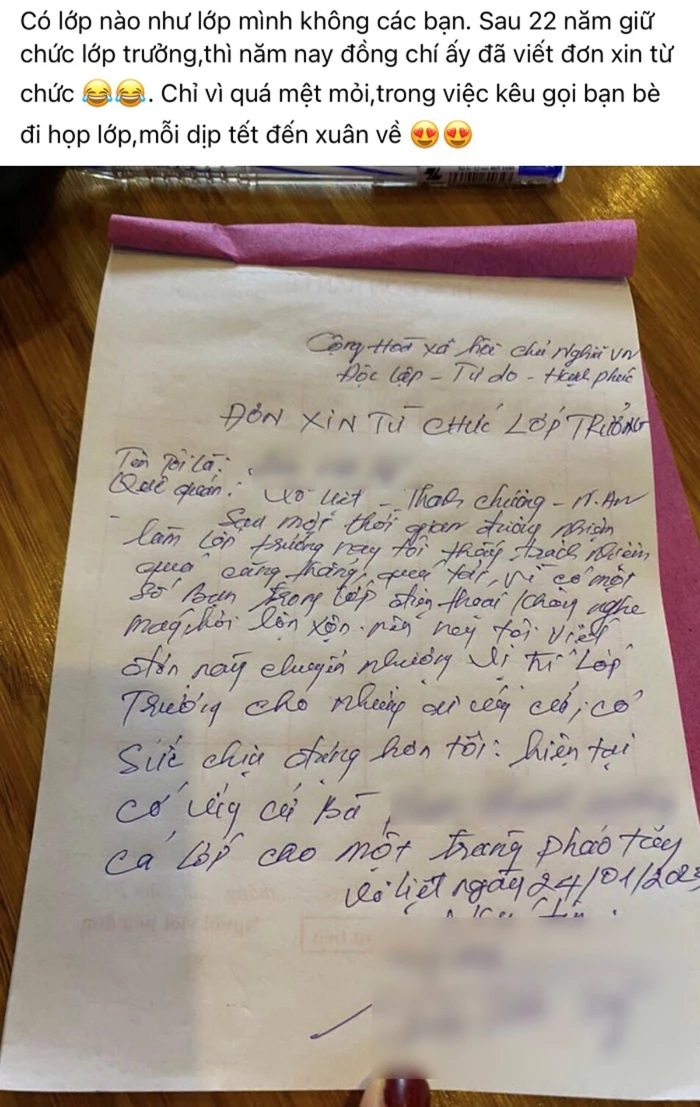 Có lớp nào như lớp mình không các bạn. Sau 22 năm giữ
chức lớp trưởng,thì năm nay đồng chí ấy đã viết đơn xin từ
chức 😂😂. Chỉ vì quá mệt mỏi,trong việc kêu gọi bạn bè
đi họp lớp,mỗi dịp tết đến xuân về 😍😍
Cộng Hoà xã hội chủ Nghĩa VN
Độc lập - Tự do - Hạnh phúc
ĐƠN XIN TỪ CHỨC LỚP TRƯỞNG
Tên tôi là:
Quê quán: Võ Liệt - Thanh chương - N.An
Sau một thời gian đương nhiệm
làm lớp trưởng nay tôi thấy trách nhiệm
quá căng thẳng, quá tải, vì có một
số bạn trong lớp điện thoại không nghe
máy, hỏi lộn xộn. nên nay tôi viết
đơn này chuyển nhượng vị trí Lớp
Trưởng cho những ai ứng cử, có
Sức chịu đựng hơn tôi: hiện tại
có ứng cử Bà
cả lớp cho một tràng pháo tay
Võ liệt ngày 24/01/2023